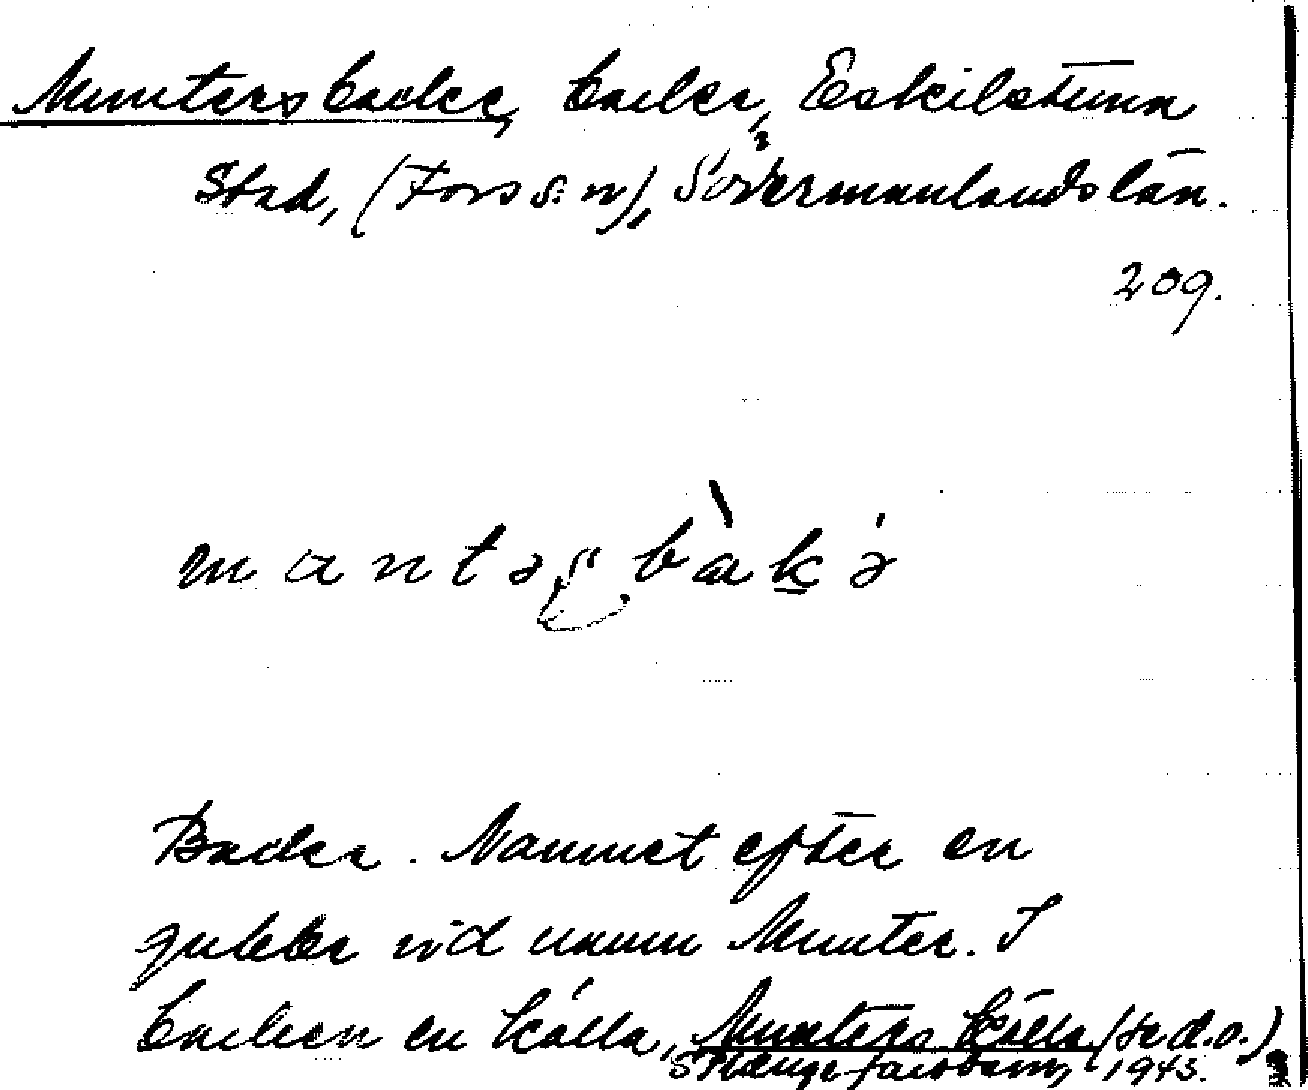 Muntersbacke, backe, Eskilstuna
Stad, (Fors s:n), Södermanlands län.
209.
mantəs bàkə
Backe. Namnet efter en
gubbe vid namn Munter. I
backen en källa, Munters källa (se d.o.)
1943.